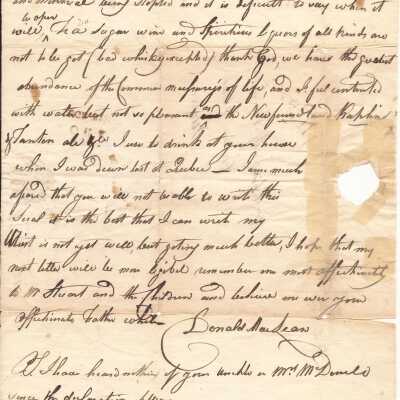 and arrival being stopted and it is dificult to say when it
will open Tea Sugar wine and Spiritious liquors of all kinds are
not to be got (bad whisky excepted) thank God, we have the greatest
abundance of the Common necessarys of life, and I ful contented
with water but not so pleasant as the Newfoundland
Taunton ale &c I use to drink at your house
when I was down last at Quebec — I am much
afraid that you will not be able to
it is the best that I can write my
Wrist is not yet well, but geting much better, I hope that my
next letter will be more Legibel remember me most affectinatly
to Mr Stuart and the Children and believe me ever your
affectinate father while
Donald MacLean
I have heard nothing of your unkle or Mrs McDonald
since the declaration of war